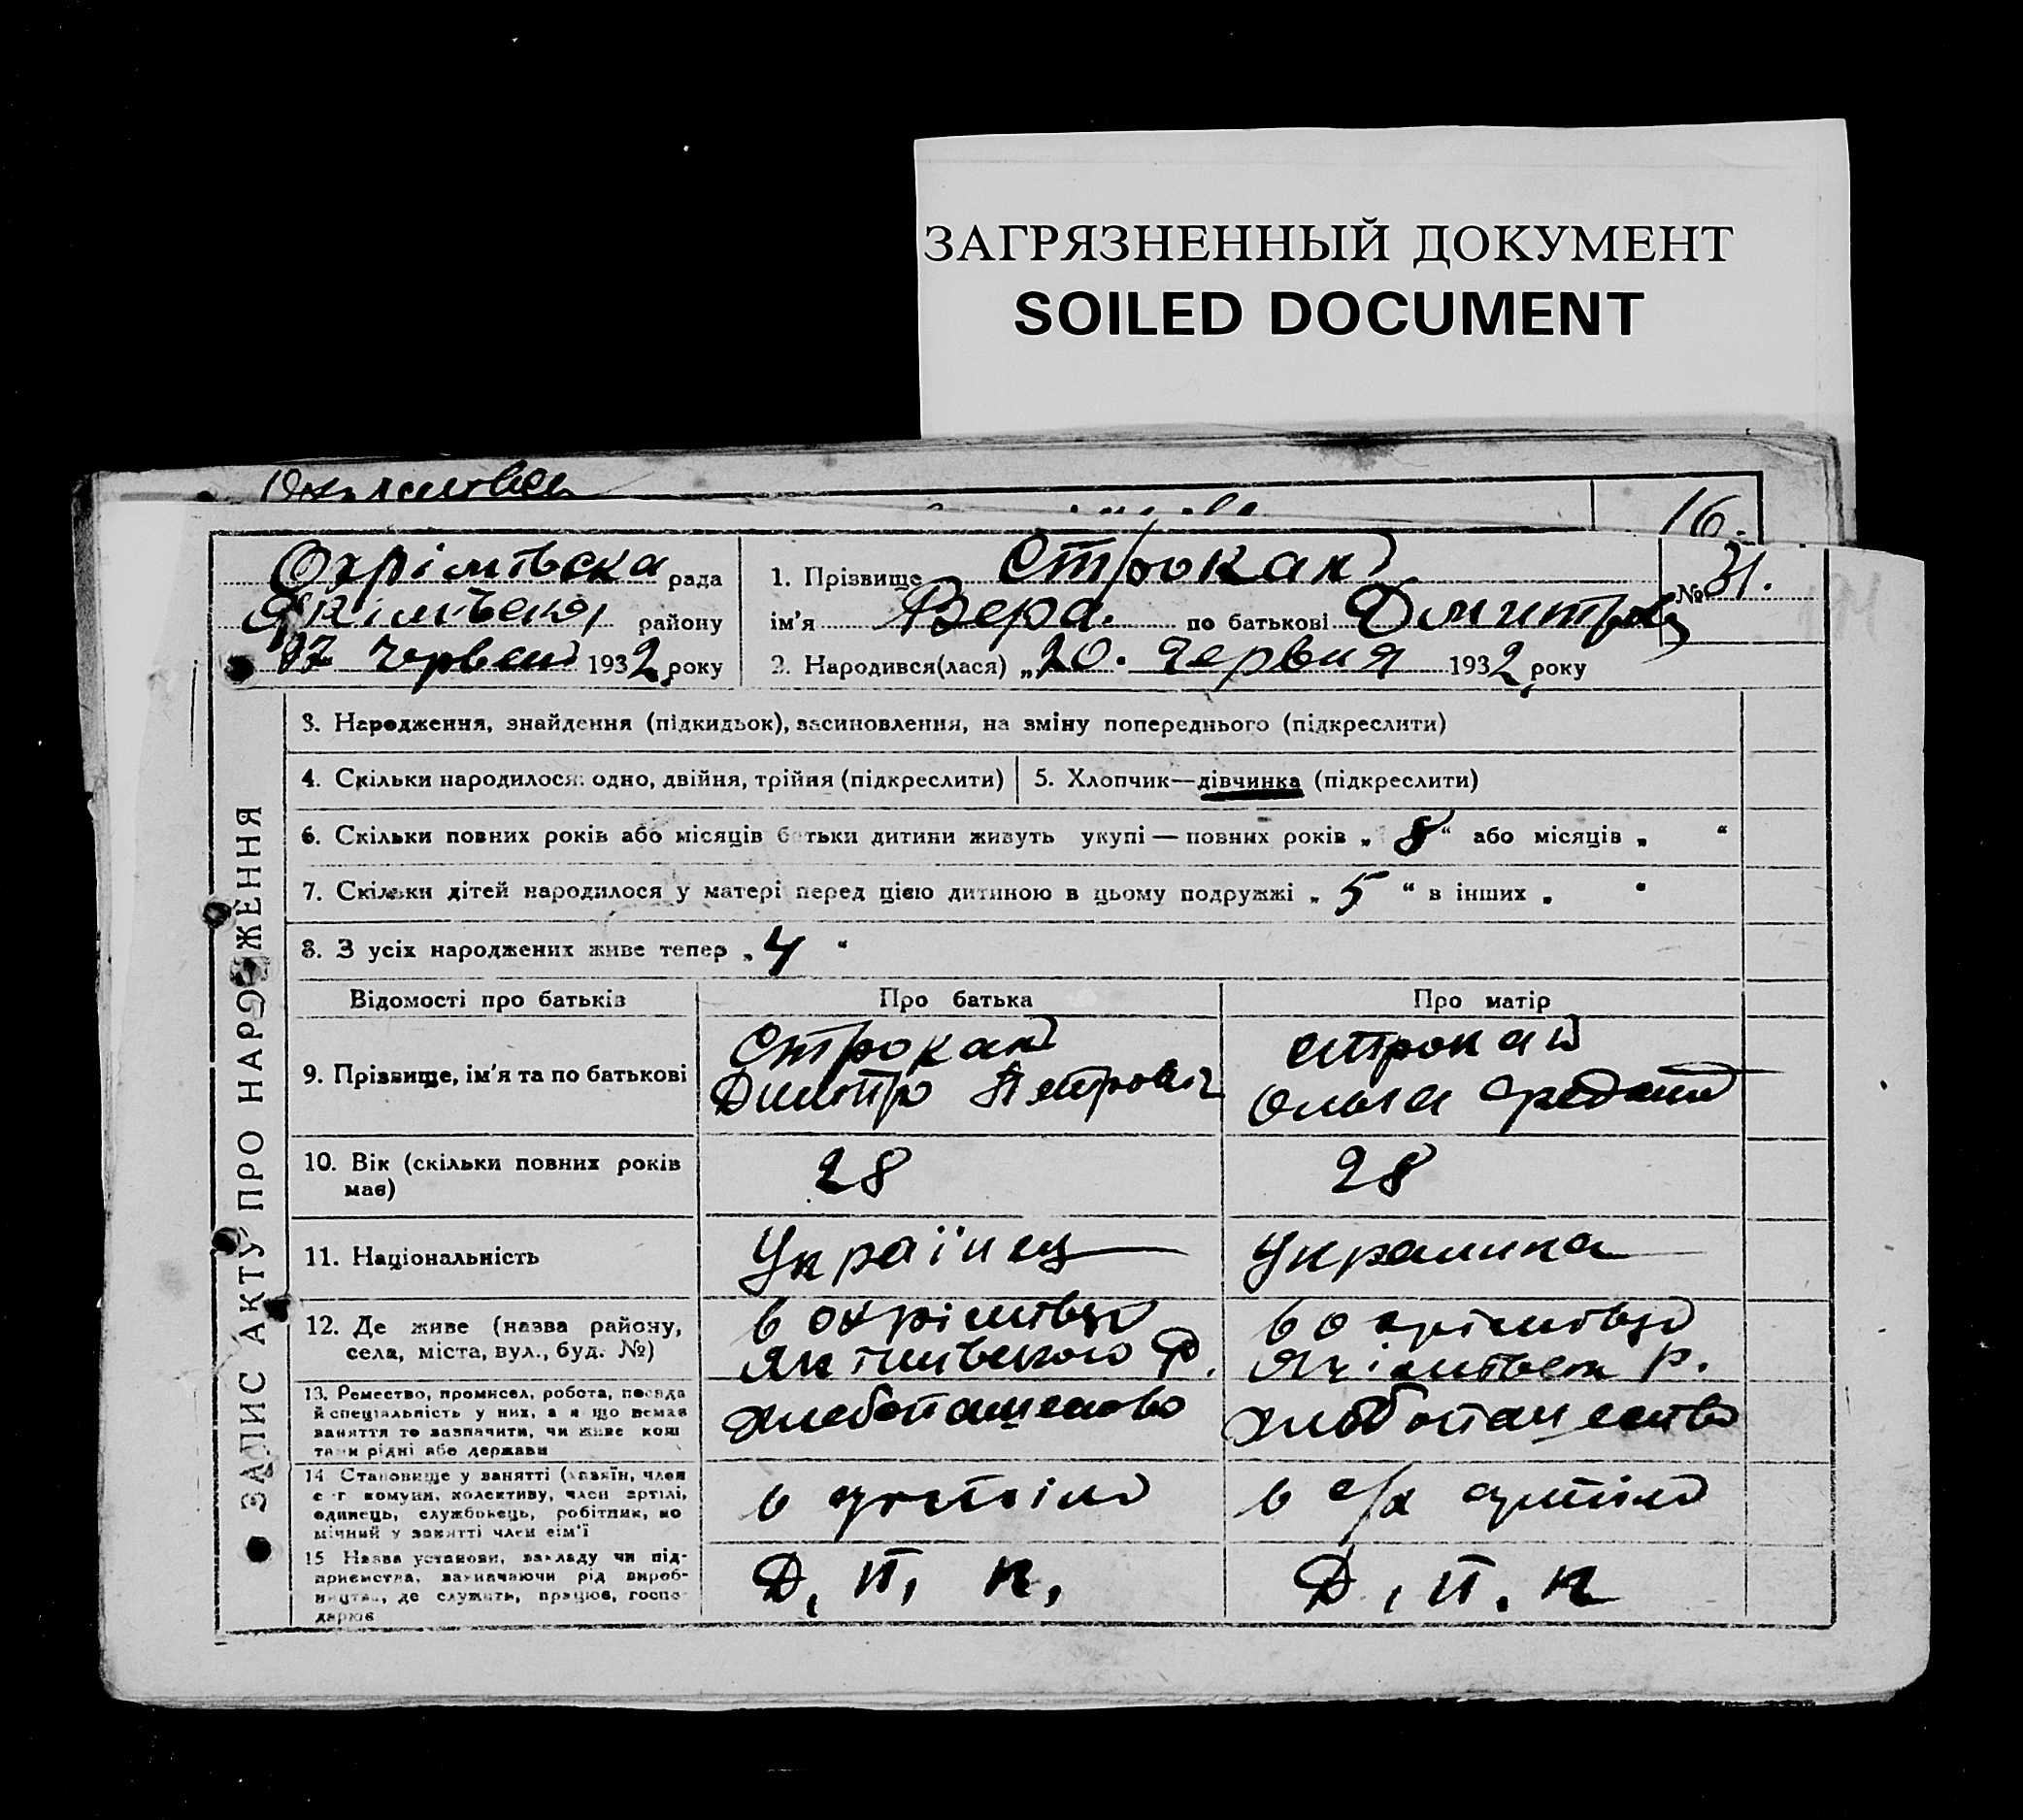 ЗАГРЯЗНЕННЫЙ ДОКУМЕНТ
SOILED DOCUMENT
16.
Охрімівська рада
Якімівськ району
червень 1932 року
1. Прізвище Строкань
№ 31.
ім'я Вера. по батькові Дмитров
2. Народився(лася) „20. Червня 1932 року
ЗАПИС АКТУ ПРО НАРОДЖЕННЯ
3. Народження, знайдення (підкидьок), засиновлення, на зміну попереднього (підкреслити)
4. Скільки народилося: одно, двійня, трійня (підкреслити)
5. Хлопчик—дівчинка (підкреслити)
6. Скільки повних років або місяців батьки дитини живуть укупі — повних років „ 8 “ або місяців „ “
7. Скільки дітей народилося у матері перед цією дитиною в цьому подружжі „ 5 “ в інших „ “
8. З усіх народжених живе тепер „ 4 “
Відомості про батьків
Про батька
Про матір
9. Прізвище, ім'я та по батькові
Строкань
Дмитро Петровіч
Строкань
Ольга
10. Вік (скільки повних років
має)
28
28
11. Національність
Українец
Украинка
12. Де живе (назва району,
села, міста, вул., буд. №)
в охрімівці
Якімівського р.
в охрімівці
Якімівськ р.
13. Ремество, промисел, робота, посада
й спеціяльність у них, а якщо немає
заняття то зазначити, чи живе кош
тами рідні або держави
хлебопашество
хлебопашество
14 Становище у занятті (хазяїн, член
с-г комуни, колективу, член артілі,
одинець, службовець, робітник, по
мічний у занятті член сім'ї
в артіли
в с/х артіли
15 Назва установи, закладу чи під-
приємства, зазначаючи рід вироб-
ництва, де служить, працює, госпо-
дарює
Д, П, К,
Д, П. К